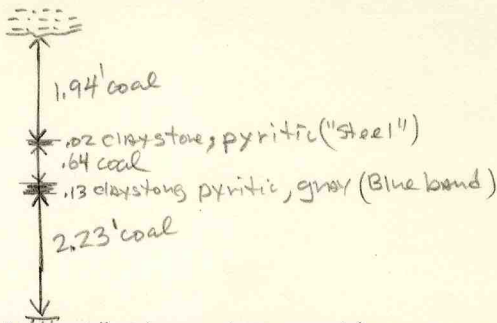 1.94' coal
.02 claystone, pyritic ("Steel")
.64 coal
.13 claystone pyritic, gray (Blue band)
2.23' coal